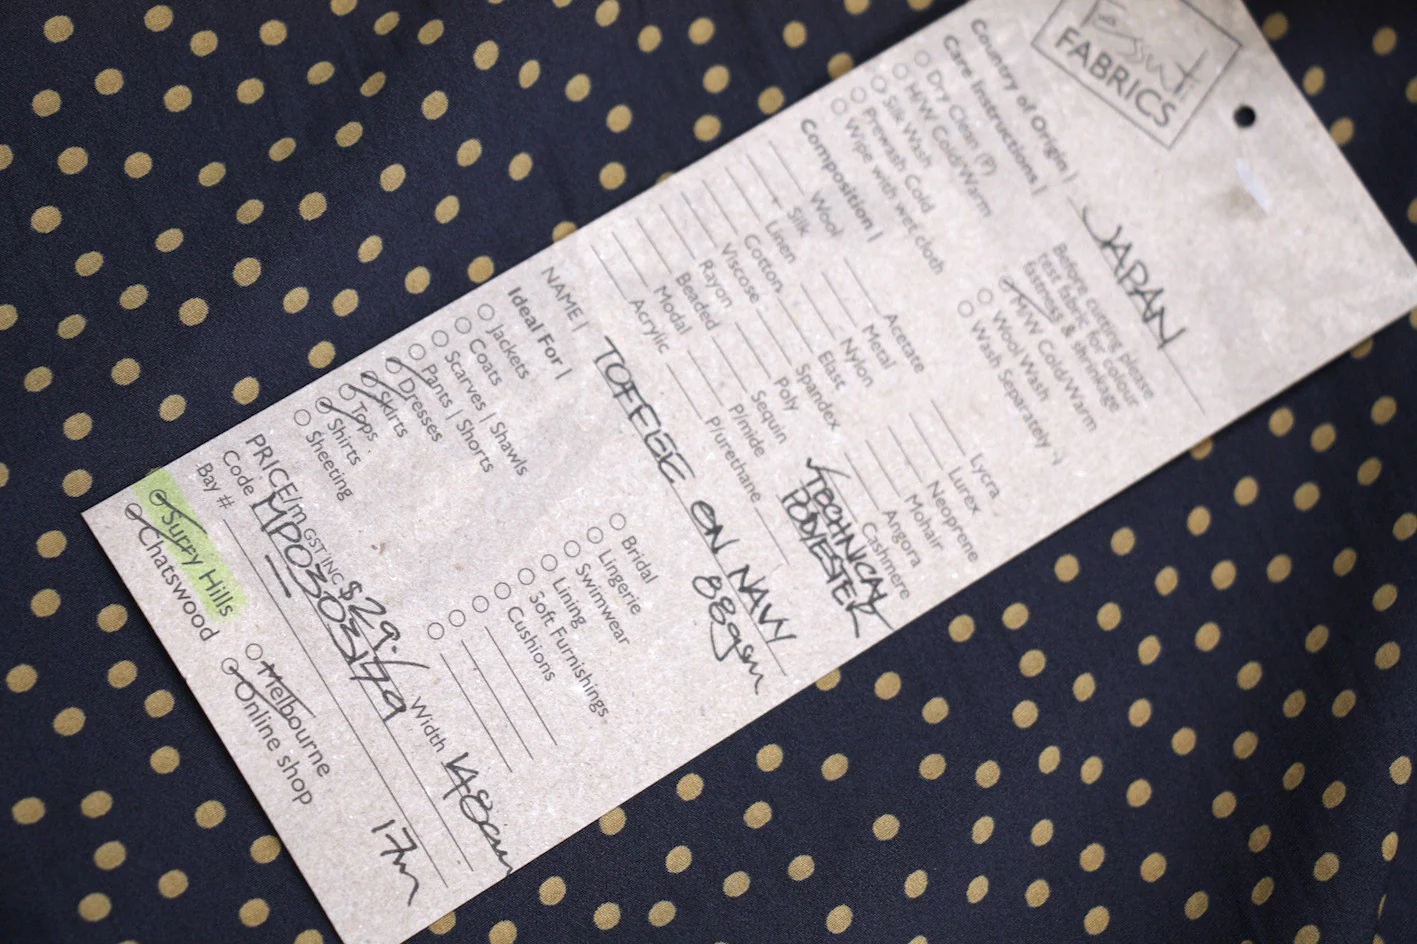 Essuti
FABRICS
Country of Origin | JAPAN
Care Instructions |
Before cutting please
test fabric for colour
fastness & shrinkage
Dry Clean (P)
H/W Cold/Warm
Silk Wash
Prewash Cold
Wipe with wet cloth
M/W Cold/Warm
Wool Wash
Wash Separately
Composition |
Wool
Silk
Linen
Cotton
Viscose
Rayon
Beaded
Modal
Acrylic
Acetate
Metal
Nylon
Elast
Spandex
Poly
Sequin
P/mide
P/urethane
Lycra
Lurex
Neoprene
Mohair
Angora
Cashmere
TECHNICAL
POLYESTER
NAME | TOFFEE ON NAVY
88gsm
Ideal For |
Jackets
Coats
Scarves | Shawls
Pants | Shorts
Dresses
Skirts
Tops
Shirts
Sheeting
Bridal
Lingerie
Swimwear
Lining
Soft Furnishings
Cushions
PRICE/m GST INC $29.- Width 148cm
Code MP03303179
Bay # 17m
Surry Hills
Chatswood
Melbourne
Online shop